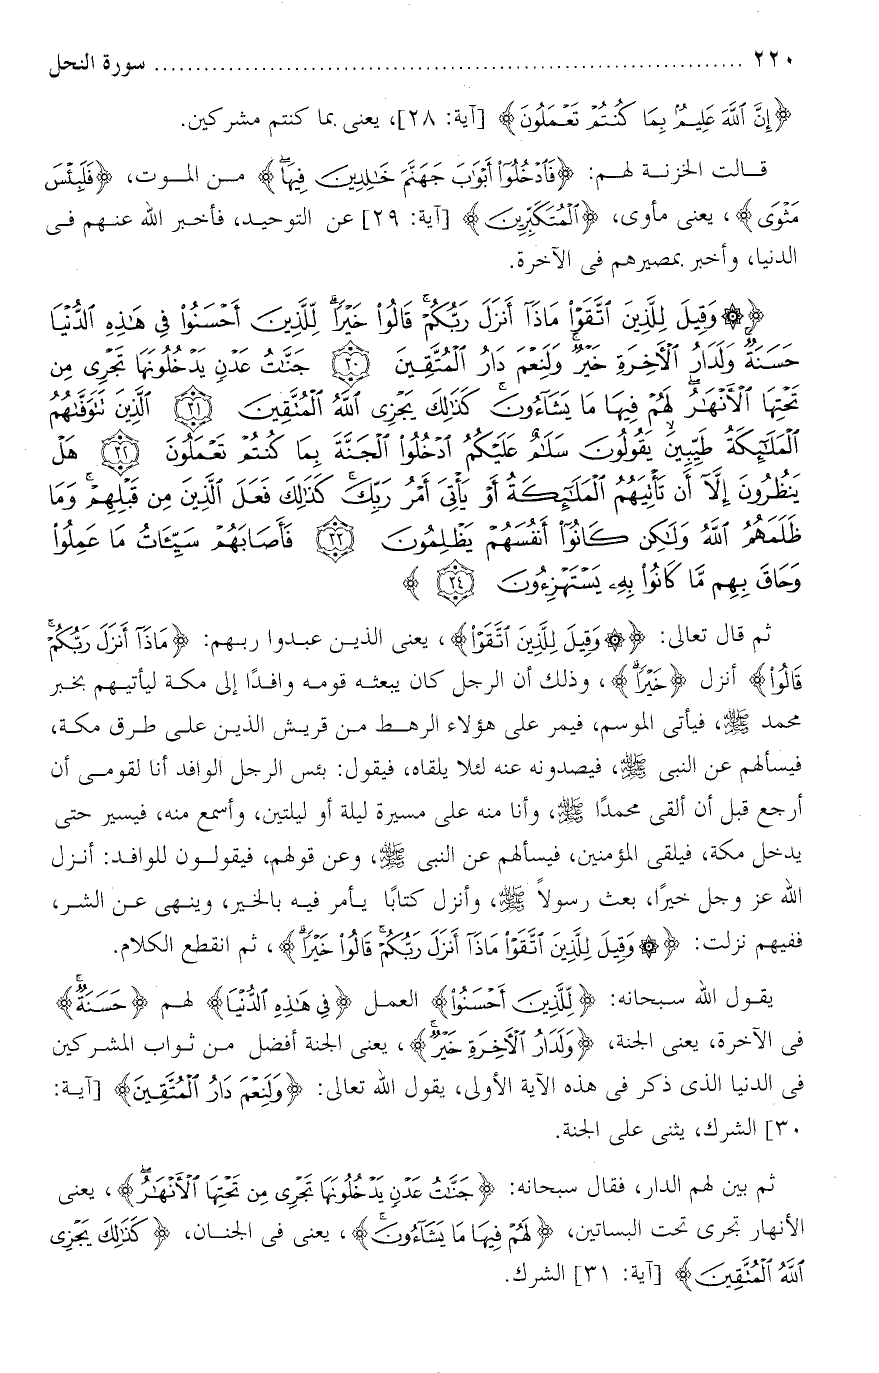 ٢٢٠ ........................................................................ سورة النحل
﴿إِنَّ ٱللَّهَ عَلِيمٌۢ بِمَا كُنتُمْ تَعْمَلُونَ﴾ [آية: ٢٨]، يعنى بما كنتم مشركين.
قـالت الخزنـة لهـم: ﴿فَٱدْخُلُوٓا۟ أَبْوَٰبَ جَهَنَّمَ خَـٰلِدِينَ فِيهَا ۖ﴾ مـن المـوت، ﴿فَلَبِئْسَ
مَثْوَى﴾، يعنى مأوى، ﴿ٱلْمُتَكَبِّرِينَ﴾ [آية: ٢٩] عن التوحيد، فأخبر الله عنهم فى
الدنيا، وأخبر بمصيرهم فى الآخرة.
﴿۞ وَقِيلَ لِلَّذِينَ ٱتَّقَوْا۟ مَاذَآ أَنزَلَ رَبُّكُمْ ۚ قَالُوا۟ خَيْرًا ۗ لِّلَّذِينَ أَحْسَنُوا۟ فِى هَـٰذِهِ ٱلدُّنْيَا
حَسَنَةٌ ۚ وَلَدَارُ ٱلْـَٔاخِرَةِ خَيْرٌ ۚ وَلَنِعْمَ دَارُ ٱلْمُتَّقِينَ ٣٠ جَنَّـٰتُ عَدْنٍ يَدْخُلُونَهَا تَجْرِى مِن
تَحْتِهَا ٱلْأَنْهَـٰرُ ۖ لَهُمْ فِيهَا مَا يَشَآءُونَ ۚ كَذَٰلِكَ يَجْزِى ٱللَّهُ ٱلْمُتَّقِينَ ٣١ ٱلَّذِينَ تَتَوَفَّىٰهُمُ
ٱلْمَلَـٰٓئِكَةُ طَيِّبِينَ ۙ يَقُولُونَ سَلَـٰمٌ عَلَيْكُمُ ٱدْخُلُوا۟ ٱلْجَنَّةَ بِمَا كُنتُمْ تَعْمَلُونَ ٣٢ هَلْ
يَنظُرُونَ إِلَّآ أَن تَأْتِيَهُمُ ٱلْمَلَـٰٓئِكَةُ أَوْ يَأْتِىَ أَمْرُ رَبِّكَ ۚ كَذَٰلِكَ فَعَلَ ٱلَّذِينَ مِن قَبْلِهِمْ ۚ وَمَا
ظَلَمَهُمُ ٱللَّهُ وَلَـٰكِن كَانُوٓا۟ أَنفُسَهُمْ يَظْلِمُونَ ٣٣ فَأَصَابَهُمْ سَيِّـَٔاتُ مَا عَمِلُوا۟
وَحَاقَ بِهِم مَّا كَانُوا۟ بِهِۦ يَسْتَهْزِءُونَ ٣٤ ﴾
ثم قال تعالى: ﴿۞ وَقِيلَ لِلَّذِينَ ٱتَّقَوْا۟﴾، يعنى الذين عبدوا ربهم: ﴿مَاذَآ أَنزَلَ رَبُّكُمْ ۚ
قَالُوا۟﴾ أنزل ﴿خَيْرًا ۗ﴾، وذلك أن الرجل كان يبعثه قومه وافدًا إلى مكة ليأتيهم بخبر
محمد ﷺ، فيأتى الموسم، فيمر على هؤلاء الرهـط مـن قريش الذيـن علـى طرق مكـة،
فيسألهم عن النبى ﷺ، فيصدونه عنه لئلا يلقاه، فيقول: بئس الرجل الوافد أنا لقومـى أن
أرجع قبل أن ألقى محمدًا ﷺ، وأنا منه على مسيرة ليلة أو ليلتين، وأسمع منه، فيسير حتى
يدخل مكة، فيلقى المؤمنين، فيسألهم عن النبى ﷺ، وعن قولهم، فيقولـون للوافـد: أنـزل
الله عز وجل خيرًا، بعث رسولاً ﷺ، وأنزل كتابًا يأمر فيه بالخير، وينهى عـن الشر،
ففيهم نزلت: ﴿۞ وَقِيلَ لِلَّذِينَ ٱتَّقَوْا۟ مَاذَآ أَنزَلَ رَبُّكُمْ ۚ قَالُوا۟ خَيْرًا ۗ﴾، ثم انقطع الكلام.
يقول الله سبحانه: ﴿لِّلَّذِينَ أَحْسَنُوا۟﴾ العمل ﴿فِى هَـٰذِهِ ٱلدُّنْيَا﴾ لهـم ﴿حَسَنَةٌ ۚ﴾
فى الآخرة، يعنى الجنة، ﴿وَلَدَارُ ٱلْـَٔاخِرَةِ خَيْرٌ ۚ﴾، يعنى الجنة أفضل مـن ثـواب المشركين
فى الدنيا الذى ذكر فى هذه الآية الأولى، يقول الله تعالى: ﴿وَلَنِعْمَ دَارُ ٱلْمُتَّقِينَ﴾ [آيـة:
٣٠] الشرك، يثنى على الجنة.
ثم بين لهم الدار، فقال سبحانه: ﴿جَنَّـٰتُ عَدْنٍ يَدْخُلُونَهَا تَجْرِى مِن تَحْتِهَا ٱلْأَنْهَـٰرُ ۖ﴾، يعنى
الأنهار تجرى تحت البساتين، ﴿لَهُمْ فِيهَا مَا يَشَآءُونَ ۚ﴾، يعنى فى الجنـان، ﴿كَذَٰلِكَ يَجْزِى
ٱللَّهُ ٱلْمُتَّقِينَ﴾ [آية: ٣١] الشرك.